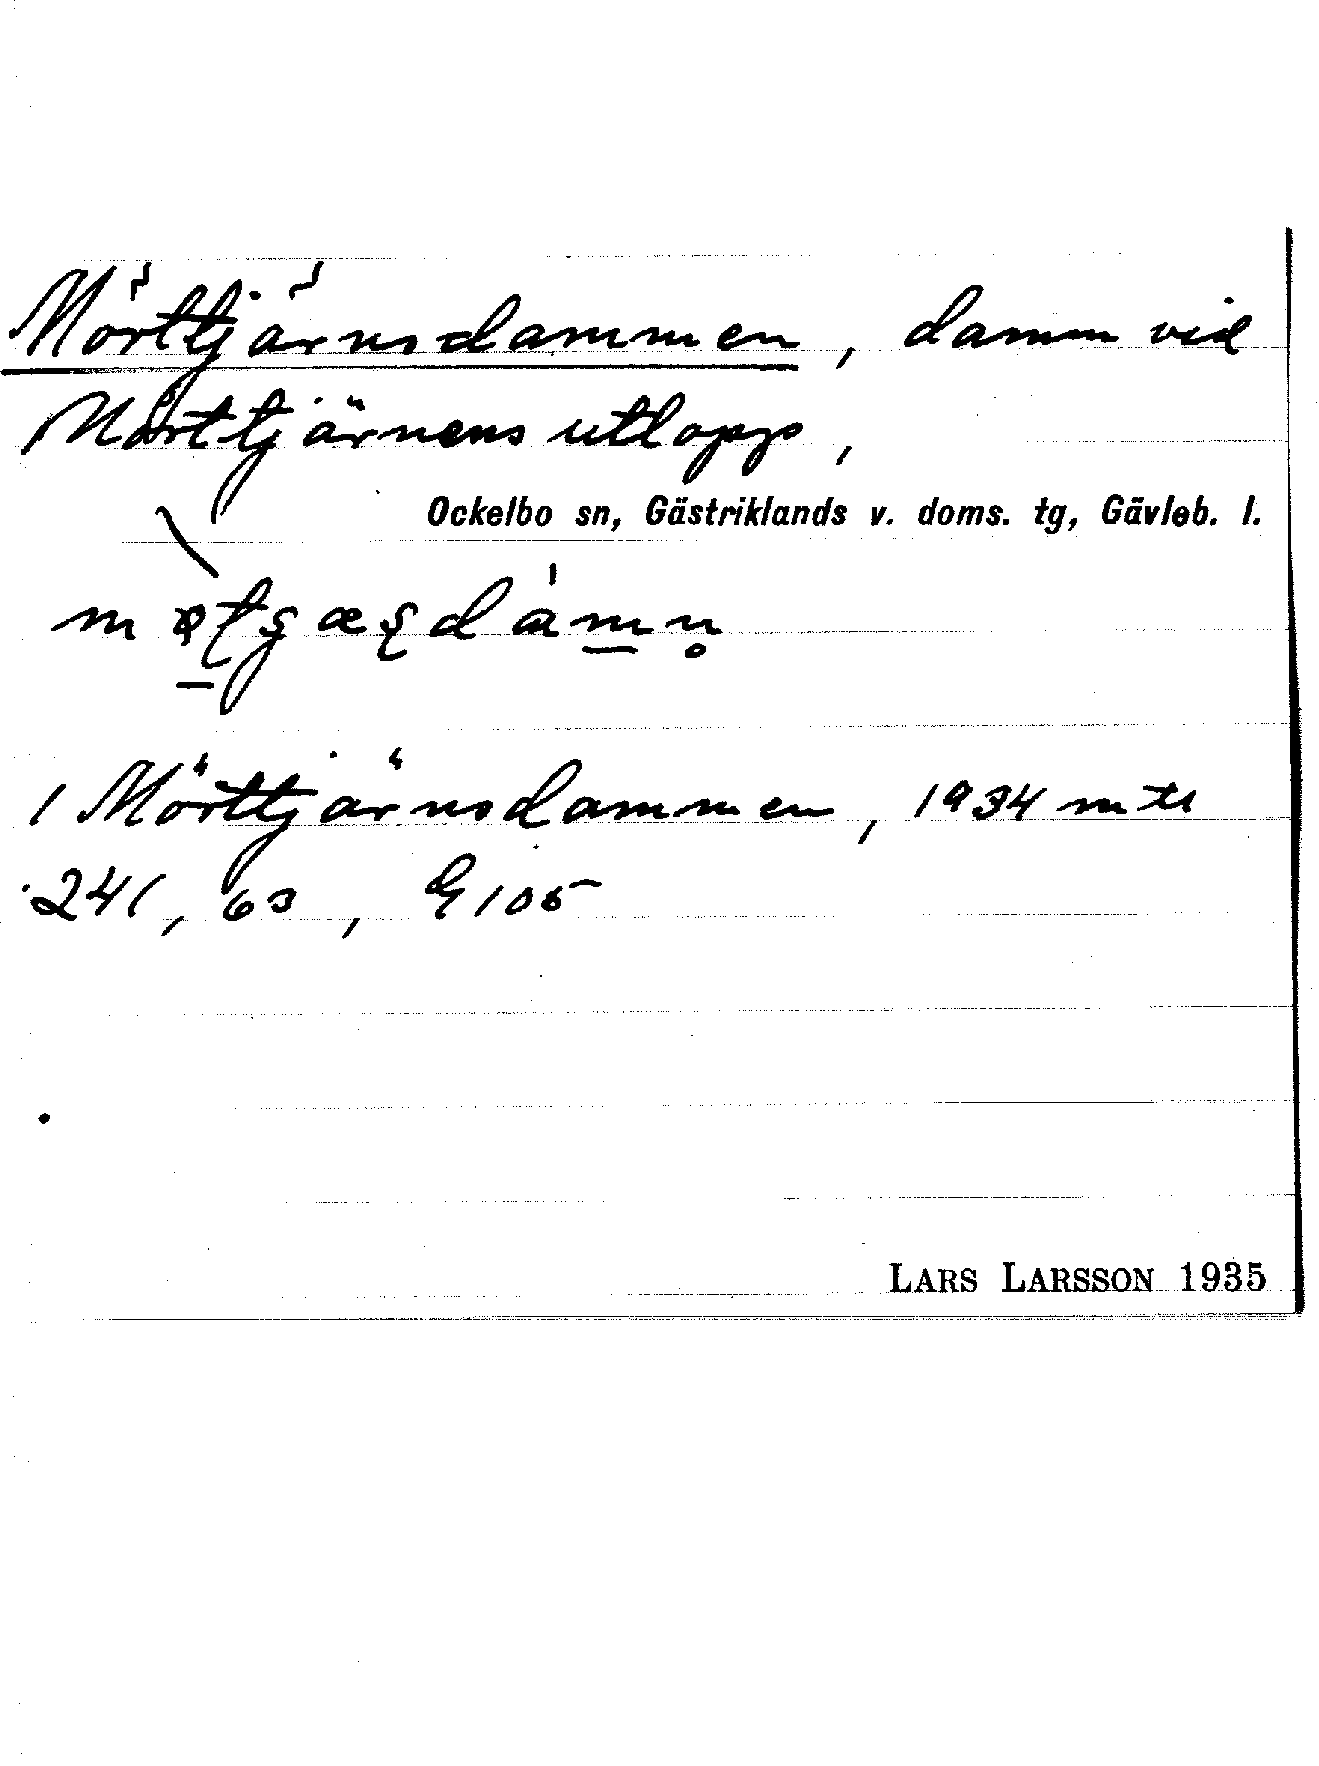 Mörttjärnsdammen, damm vid
Mörttjärnens utlopp,
Ockelbo sn, Gästriklands v. doms. tg, Gävleb. l.
1 Mörttjärnsdammen, 1934
241, 63, G 105
LARS LARSSON 1935